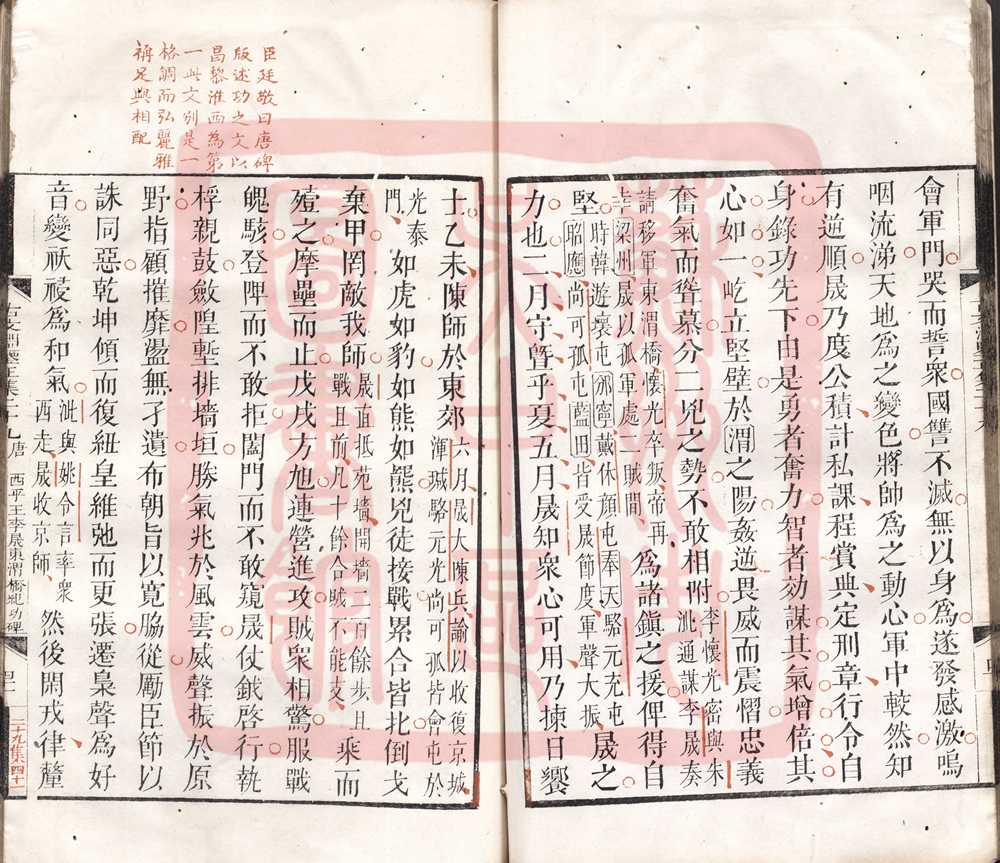 會軍門哭而誓衆國讐不滅無以身爲遂發感激嗚
咽流涕天地爲之變色將帥爲之動心軍中較然知
有逆順晟乃度公積計私課程賞典定刑章行令自
身錄功先下由是勇者奮力智者効謀其氣增倍其
心如一屹立堅壁於渭之陽姦逆畏威而震慴忠義
奮氣而聳慕分二兇之勢不敢相附李懷光密與朱泚通謀李晟奏
請移軍東渭橋懷光卒叛帝再幸梁州晟以孤軍處二賊間爲諸鎭之援俾得自
堅時韓遊瓌屯邠寧戴休顔屯奉天駱元光屯昭應尚可孤屯藍田皆受晟節度軍聲大振晟之
力也二月守曁乎夏五月晟知衆心可用乃揀日饗
士乙未陳師於東郊六月晟大陳兵諭以收復京城渾瑊駱元光尚可孤皆會屯於
光泰門如虎如豹如熊如羆兇徒接戰累合皆北倒戈
棄甲罔敵我師晟直抵苑墻開墻二百餘步且戰且前凡十餘合賊不能支乘而
殪之摩壘而止戊戌方旭連營進攻賊衆相驚服戰
魄駭登陴而不敢拒闔門而不敢窺晟仗鉞啓行執
桴親鼓斂隍塹排墻垣勝氣兆於風雲威聲振於原
野指顧摧靡盪無孑遺布朝旨以寬脇從勵臣節以
誅同惡乾坤傾而復紐皇維弛而更張遷梟聲爲好
音變祅祲爲和氣泚與姚令言率衆西走晟收京師然後閑戎律釐
臣廷敬曰唐碑
版述功之文以
昌黎淮西爲第
一此文別是一
格調而弘麗雅
稱足與相配
唐 西平王李晟東渭橋紀功碑
二十九集四十一